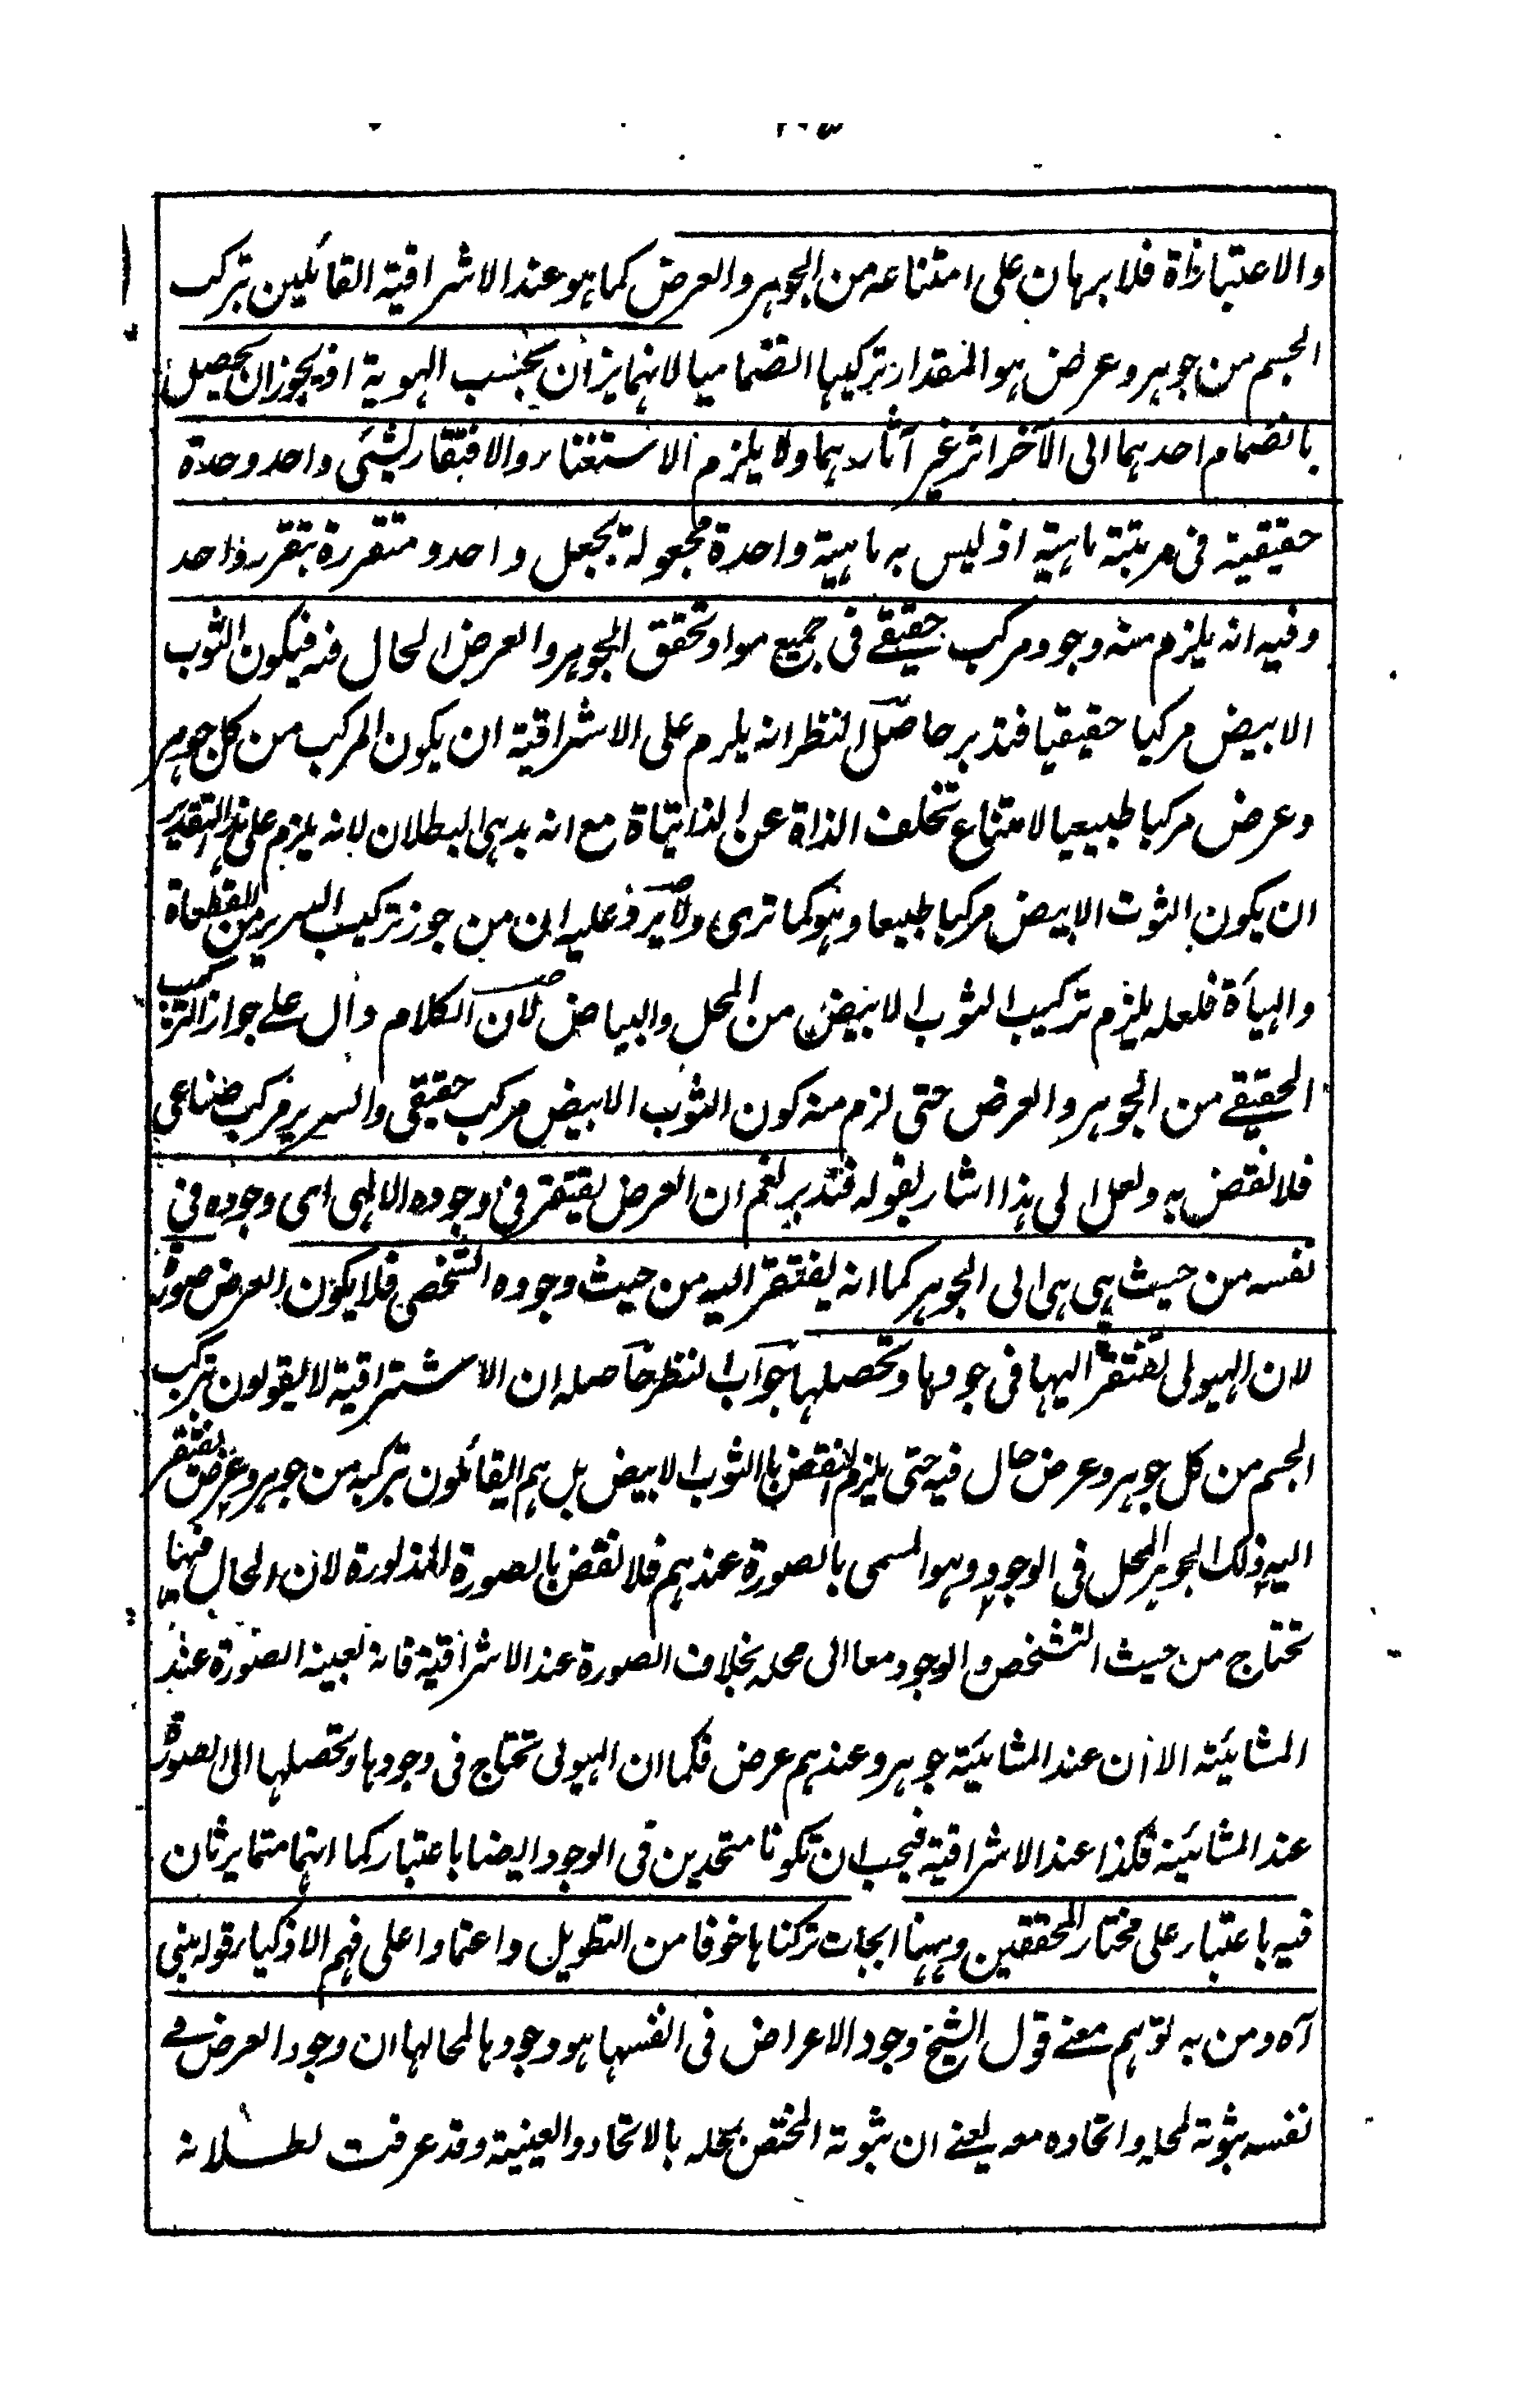 والاعتباراة فلا برهان على امتناعه من الجوهر والعرض كما هو عند الاشراقية القائلين بتركب
الجسم من جوهر وعرض هو المقدار تركيبا انضماميا لانهما يزان بحسب الهوية اذ يجوز ان يحصل
بانضمام احدهما الى الآخر اثر غير آثارهما ولا يلزم الاستغناء والافتقار لشئى واحد وحدة
حقيقية فى مرتبة ماهية اذ ليس به ماهية واحدة مجعولة بجعل واحد ومتقررة بتقرر واحد
وفيه انه يلزم منه وجود مركب حقيقے فى جميع مواد تحقق الجوهر والعرض الحال فيه فيكون الثوب
الابيض مركبا حقيقيا فتدبر حاصل النظر انه يلزم على الاشراقية ان يكون المركب من كل جوهر
وعرض مركبا طبيعيا لامتناع تخلف الذاة عن الذاتياة مع انه بديهى البطلان لانه يلزم على هذا التقدير
ان يكون الثوب الابيض مركبا طبيعا وهو كما ترى ولا يرد عليه ان من جوز تركيب السرير من القطعاة
والهيأة فلعله يلزم تركيب الثوب الابيض من المحل والبياض لان الكلام دال علے جواز التركيب
الحقيقے من الجوهر والعرض حتى لزم منه كون الثوب الابيض مركب حقيقى والسرير مركب صناعى
فلا نقض به ولعل الى هذا اشار بقوله فتدبر نعم ان العرض يفتقر فى وجوده الالهى اى وجوده فى
نفسه من حيث هى هى الى الجوهر كما انه يفتقر اليه من حيث وجوده الشخصى فلا يكون العرض صورة
لان الهيولى تفتقر اليها فى جودها وتحصلها جواب النظر حاصله ان الاشتراقية لا يقولون بتركب
الجسم من كل جوهر وعرض حال فيه حتى يلزم النقض بالثوب الابيض بل هم القائلون بتركبه من جوهر وعرض يفتقر
اليه ذلك الجوهر المحل فى الوجود وهو المسمى بالصورة عندهم فلا نقض بالصورة المذكورة لان الحال فيها
تحتاج من حيث التشخص والوجود معا الى محله بخلاف الصورة عند الاشراقية فانه بعينه الصورة عند
المشائية الا ان عند المشائية جوهر وعندهم عرض فكما ان الهيولى تحتاج فى وجودها وتحصلها الى الصورة
عند المشائية فكذا عند الاشراقية فيجب ان تكونا متحدين فى الوجود ايضا باعتبار كما انهما متمايزتان
فيه باعتبار على مختار المحققين وههنا ابحاث تركناها خوفا من التطويل واعتمادا على فهم الاذكياء قوله يبنى
آه ومن به توهم معنے قول الشيخ وجود الاعراض فى انفسها هو وجودها لمحالها ان وجود العرض فے
نفسه ثبوته لمحله واتحاده معه يعنے ان ثبوته المختص بمحله بالاتحاد والعينية وقد عرفت بطلانه